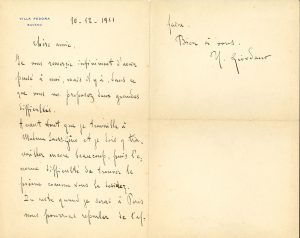 VILLA FEDORA
BAVENO
10-12-1911
Chère amie,
Je vous remercie infiniment d'avoir
pensé à moi, mais il y a, dans ce
que vous me proposez deux grandes
difficultés.
Avant tout que je travaille à
Madame Sans-Gêne et je dois y tra-
vailler encore beaucoup, puis l'é-
norme difficulté de trouver le
poème comme vous le
Du reste quand je serai à Paris
nous pourrons reparler de l'af-
faire.
Bien à vous.
U. Giordano